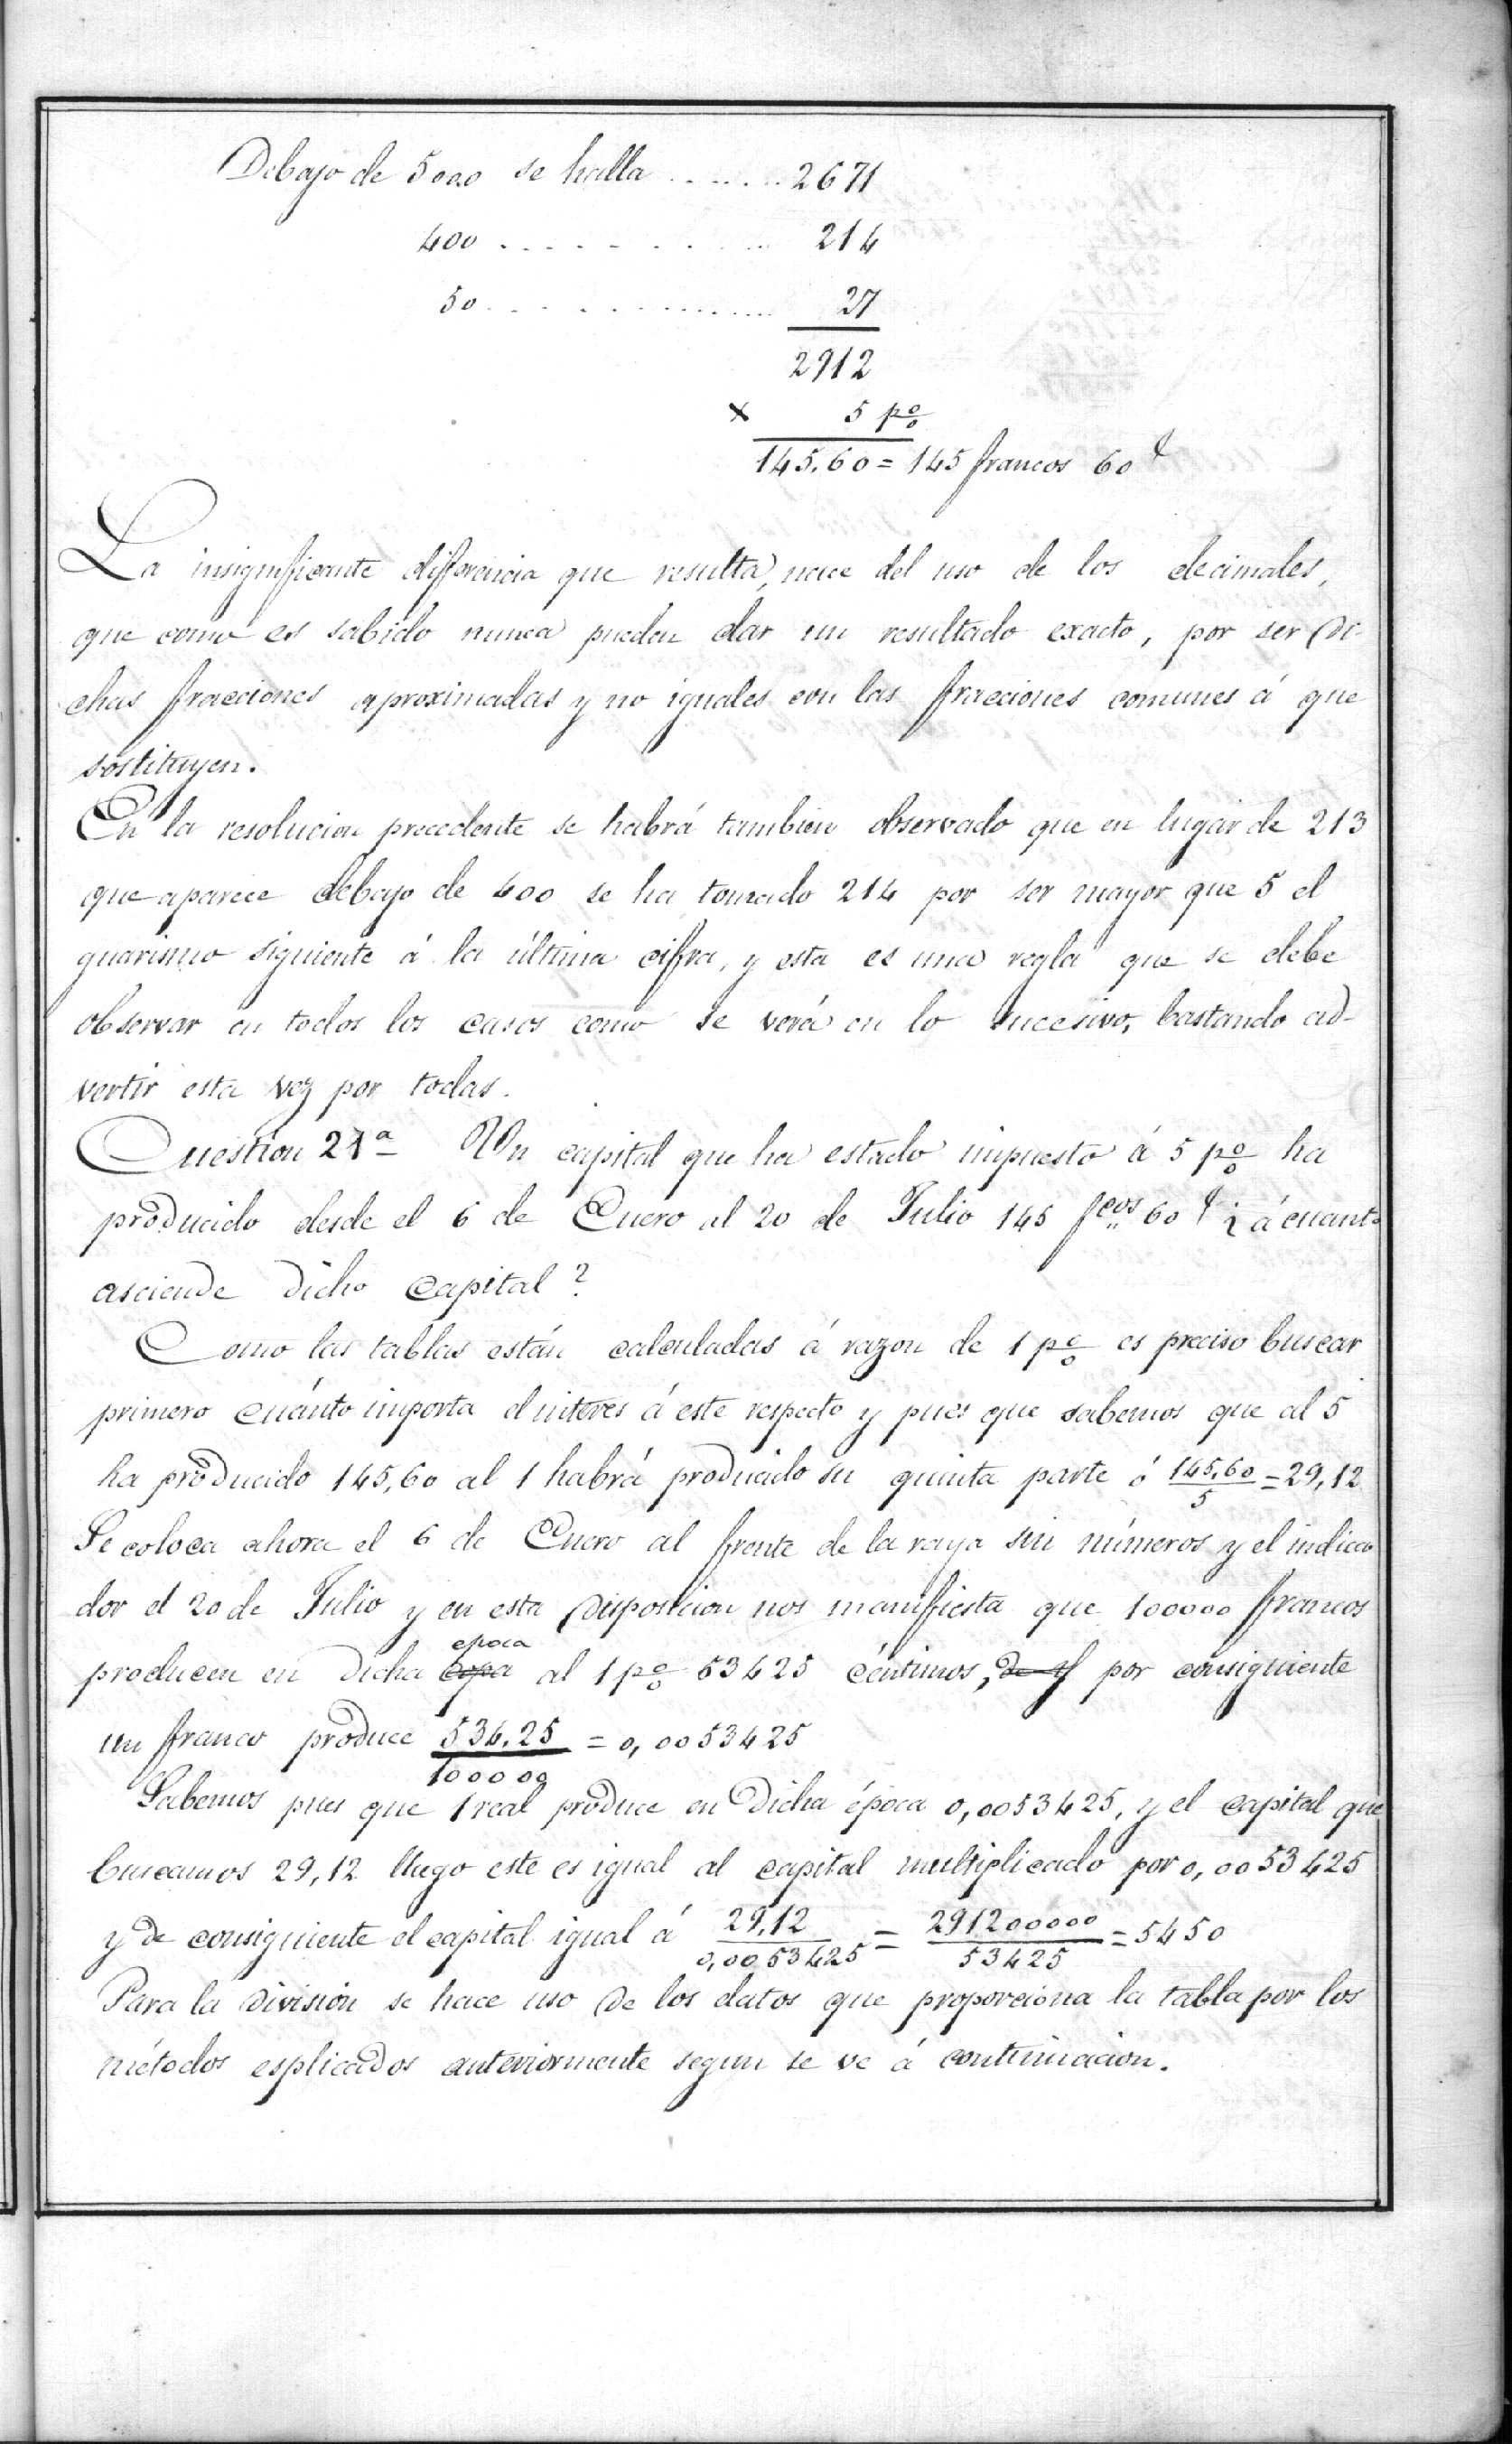 Debajo de 5000 se halla ........ 2671
400 ............ 214
50 ............ 27
2912
× 5 p%
145.60 = 145 francos 60 c
La insignificante diferencia que resulta, nace del uso de los decimales,
que como es sabido nunca pueden dar un resultado exacto, por ser di-
chas fracciones aproximadas y no iguales con las fracciones comunes á que
sostituyen.
En la resolucion precedente se habrá tambien observado que en lugar de 213
que aparece debajo de 400 se ha tomado 214 por ser mayor que 5 el
guarismo siguiente á la última cifra, y esta es una regla que se debe
observar en todos los casos como se verá en lo sucesivo, bastando ad-
vertir esta vez por todas.
Cuestion 21ª Un capital que ha estado impuesto á 5 p% ha
producido desde el 6 de Enero al 20 de Julio 145 fcos 60 c ¿á cuanto
asciende dicho capital?
Como las tablas están calculadas á razon de 1 p% es preciso buscar
primero cuánto importa el interes á este respecto y pues que sabemos que al 5
ha producido 145,60 al 1 habrá producido su quinta parte ó 145,60/5 = 29,12
Se coloca ahora el 6 de Enero al frente de la raya sin números y el indica
dor el 20 de Julio y en esta disposicion nos manifiesta que 100000 francos
producen en dicha epoca al 1 p% 53425 céntimos, por consiguiente
un franco produce 534,25/100000 = 0,0053425
Sabemos pues que 1 real produce en dicha época 0,0053425, y el capital que
buscamos 29,12 luego este es igual al capital multiplicado por 0,0053425
y de consiguiente el capital igual á 29,12/0,0053425 = 291200000/53425 = 5450
Para la division se hace uso de los datos que proporciona la tabla por los
métodos esplicados anteriormente segun se ve á continuacion.